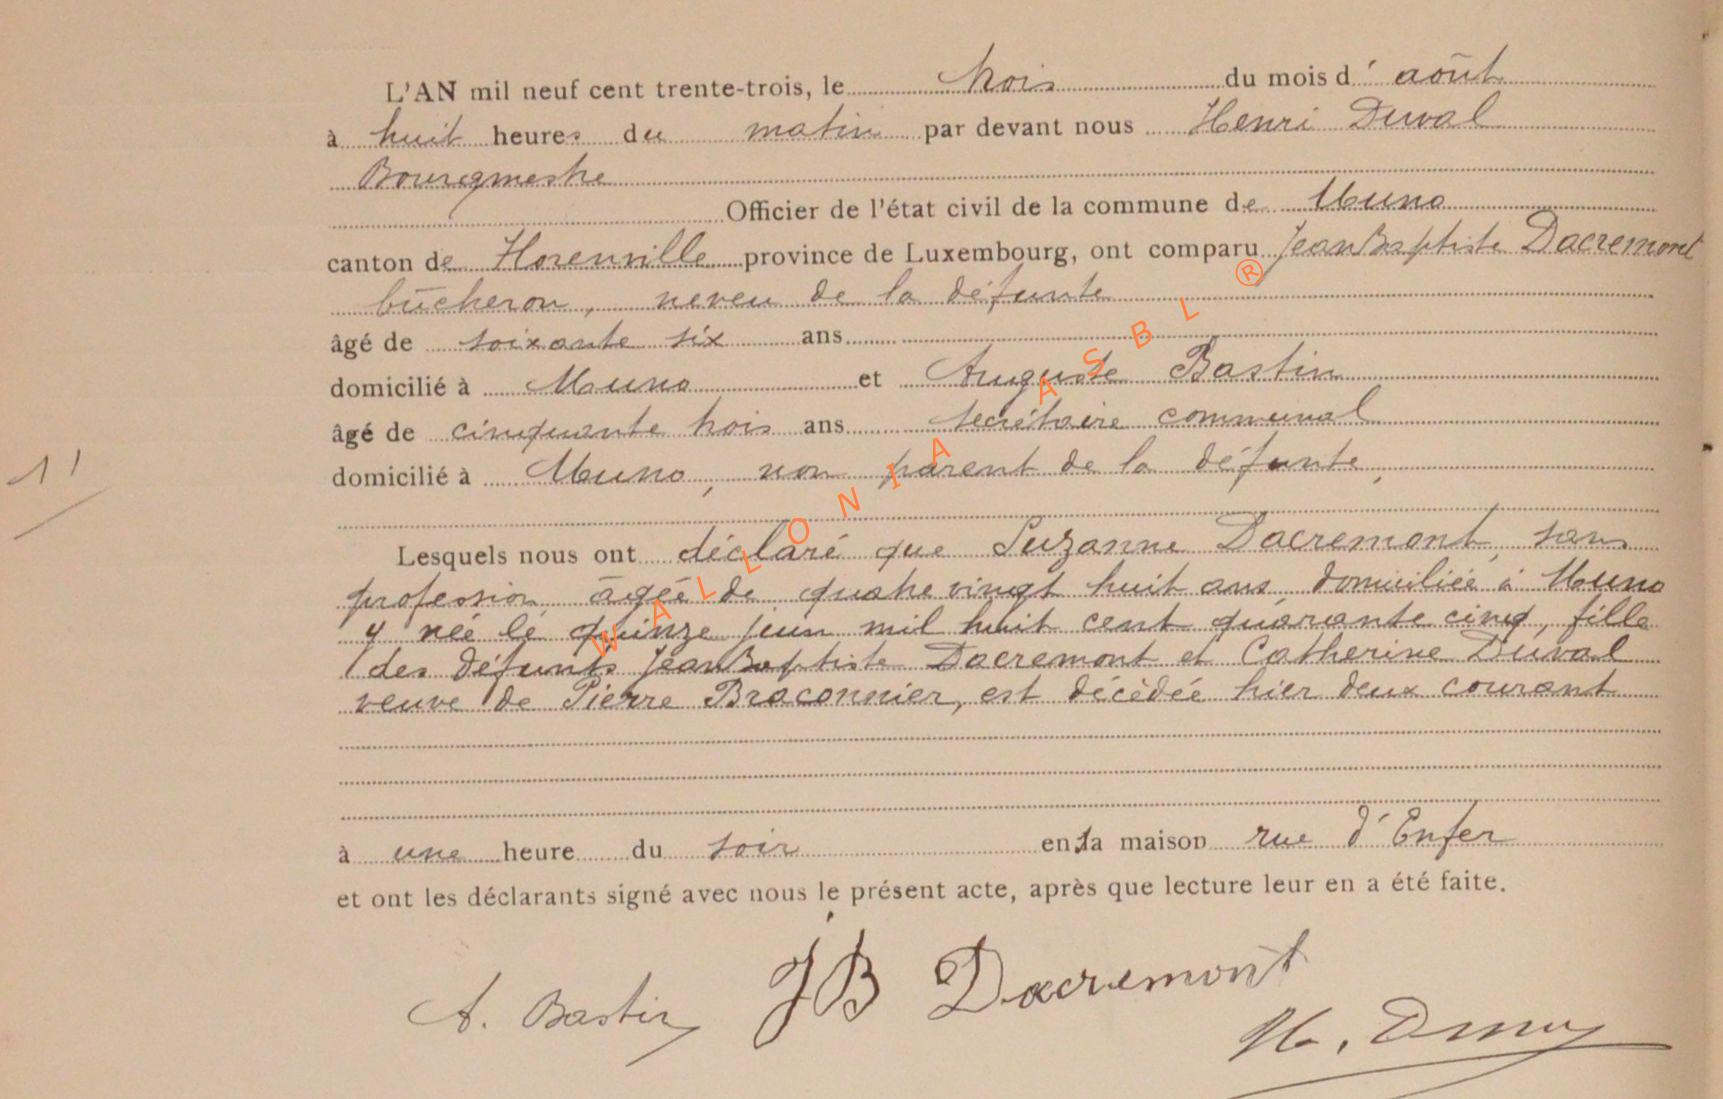 L'AN mil neuf cent trente-trois, le trois du mois d' août
à huit heures du matin par devant nous Henri Duval
Bourgmestre
Officier de l'état civil de la commune de Muno
canton de Florenville province de Luxembourg, ont comparu Jean Baptiste Dacremont
bûcheron, neveu de la défunte
âgé de soixante six ans
domicilié à Muno et Auguste Bastin
âgé de cinquante trois ans secrétaire communal
domicilié à Muno, non parent de la défunte,
11
Lesquels nous ont déclaré que Suzanne Dacremont, sans
profession, âgée de quatre vingt huit ans, domiciliée à Muno
y née le quinze juin mil huit cent quarante cinq, fille
des défunts Jean Baptiste Dacremont et Catherine Duval
veuve de Pierre Braconnier, est décédée hier deux courant
à une heure du soir en sa maison rue d'Enfer
et ont les déclarants signé avec nous le présent acte, après que lecture leur en a été faite.
A. Bastin JB Dacremont
H. Duval
WALLONIA ASBL ®